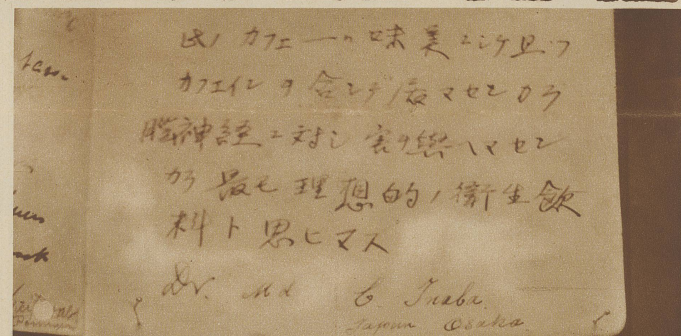 此ノカフエーハ味美ニシテ且ツ
カフエインヲ含ンデ居マセンカラ
脳神経ニ対シ害ヲ與ヘマセン
カラ最モ理想的ノ衛生飲
料ト思ヒマス
Dr. Md C. Inaba.
Japan Osaka